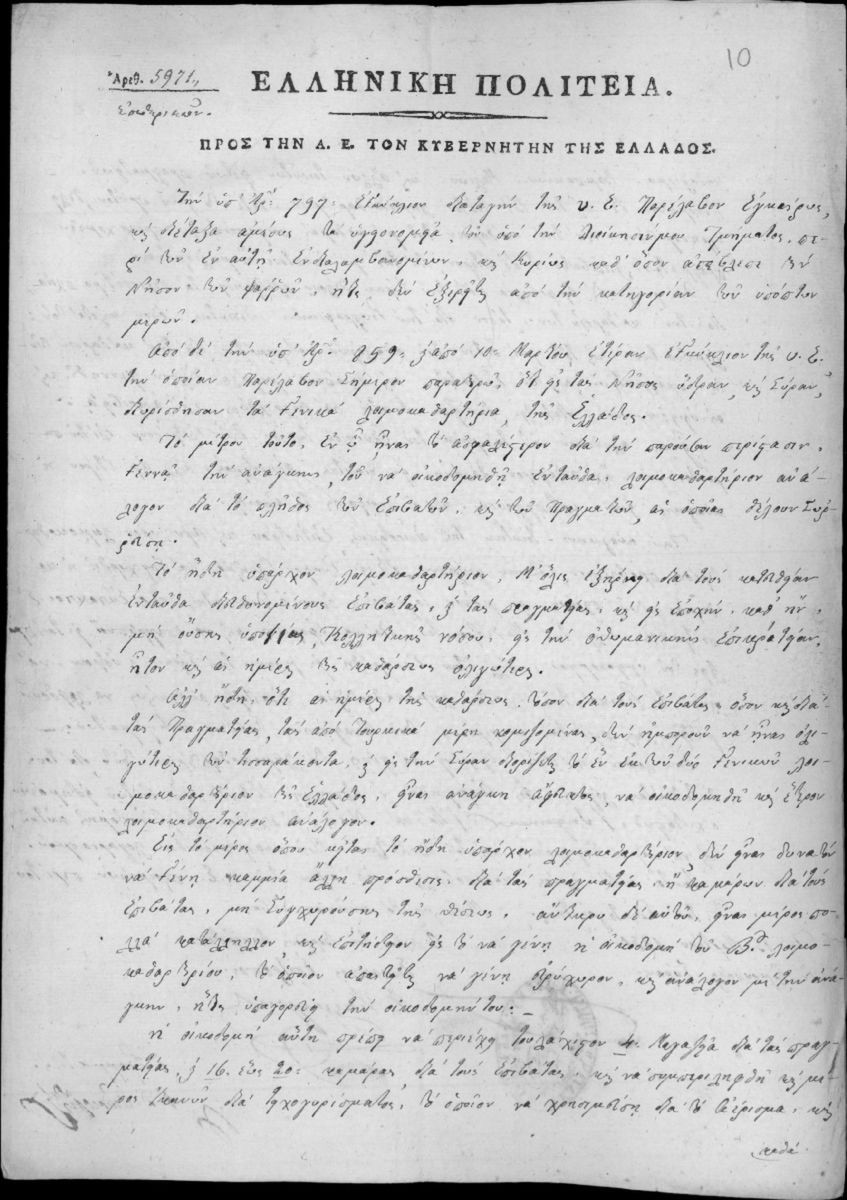 10
Ἀριθ. 5971
ΕΛΛΗΝΙΚΗ ΠΟΛΙΤΕΙΑ.
ἐσωτερικῶν.
ΠΡΟΣ ΤΗΝ Α. Ε. ΤΟΝ ΚΥΒΕΡΝΗΤΗΝ ΤΗΣ ΕΛΛΑΔΟΣ.
Τὴν ὑπ' Ἀρ. 797 ἐγκύκλιον διαταγὴν τῆς υ. Ε. παρέλαβον ἐγκαίρως,
καὶ διέταξα ἀμέσως τὰ ὑγειονομεῖα, τοῦ ὑπὸ τὴν διοίκησίν μου τμήματος, πε-
ρὶ τῶν ἐν αὐτῇ ἐνδιαλαμβανομένων, καὶ κυρίως καθ' ὅσον ἀπέβλεπε τὴν
Νῆσον τῶν Ψαρρῶν, ἥτις δὲν ἐξαιρεῖται ἀπὸ τὴν κατηγορίαν τῶν ὑπόπτων
μερῶν.
τὴν ὑπ' Ἀρ. 859 ἀπὸ 10 Μαρτίου ἑτέραν ἐγκύκλιον τῆς υ. Ε.
τὴν ὁποίαν παρέλαβον σήμερον παρατηρῶ, ὅτι εἰς τὰς Νήσους Ὕδραν, καὶ Σύραν,
διωρίσθησαν τὰ Γενικὰ λοιμοκαθαρτήρια, τῆς Ἑλλάδος.
Τὸ μέτρον τοῦτο, ἐν ᾧ εἶναι τὸ ἀσφαλέστερον διὰ τὴν παροῦσαν περίστασιν,
γεννᾷ τὴν ἀνάγκην, τοῦ νὰ οἰκοδομηθῇ ἐνταῦθα λοιμοκαθαρτήριον ἀνά-
λογον διὰ τὸ πλῆθος τῶν ἐπιβατῶν, καὶ τῶν πραγματειῶν, αἱ ὁποῖαι θέλουν συρ-
ρεύσῃ.
Τὸ ἤδη ὑπάρχον λοιμοκαθαρτήριον, μόλις ἐξήρκει διὰ τοὺς κατευθεῖαν
ἐνταῦθα διευθυνομένους ἐπιβάτας, καὶ τὰς πραγματείας, καὶ εἰς ἐποχὴν, καθ' ἣν,
μὴ οὔσης ὑποψίας κολλητικῆς νόσου, εἰς τὴν ὀθωμανικὴν ἐπικράτειαν,
ἦτον καὶ αἱ ἡμέραι τῆς καθάρσεως ὀλιγώτεραι.
Ἀλλ' ἤδη, ὅτι αἱ ἡμέραι τῆς καθάρσεως, τόσον διὰ τοὺς ἐπιβάτας ὅσον καὶ διὰ
τὰς πραγματείας, τὰς ἀπὸ Τουρκικὰ μέρη κομιζομένας, δὲν ἠμποροῦν νὰ ἦναι ὀλι-
γώτεραι τῶν τεσσαράκοντα, καὶ εἰς τὴν Σύραν διορίζεται τὸ ἓν ἐκ τῶν δύω Γενικῶν λοι-
μοκαθαρτηρίων τῆς Ἑλλάδος, εἶναι ἀνάγκη ἄφευκτος, νὰ οἰκοδομηθῇ καὶ ἕτερον
λοιμοκαθαρτήριον ἀνάλογον.
Εἰς τὸ μέρος ὅπου κεῖται τὸ ἤδη ὑπάρχον λοιμοκαθαρτήριον δὲν εἶναι δυνατὸν
νὰ γένῃ καμμία ἄλλη πρόσθεσις διὰ τὰς πραγματείας, ἢ καμάρων διὰ τοὺς
ἐπιβάτας, μὴ συγχωρούσης τῆς θέσεως, ἄντικρυ δὲ αὐτοῦ, εἶναι μέρος πολ-
λὰ κατάλληλον, καὶ ἐπιτήδειον εἰς τὸ νὰ γένῃ ἡ οἰκοδομὴ τοῦ Β<sup>ου</sup> λοιμο-
καθαρτηρίου, τὸ ὁποῖον ἀπαιτεῖται νὰ γένῃ εὐρύχωρον, καὶ ἀνάλογον μὲ τὴν ἀνάγ-
κην, ἥτις ὑπαγορεύει τὴν οἰκοδομήν του.
Ἡ οἰκοδομὴ αὕτη πρέπει νὰ περιέχῃ τουλάχιστον 4 Μαγαζεῖα διὰ τὰς πραγ-
ματείας, καὶ 16 ἕως 20 καμάρας διὰ τοὺς ἐπιβάτας, καὶ νὰ συμπεριληφθῇ καὶ μέ-
ρος ἱκανὸν διὰ τειχογυρίσματος, τὸ ὁποῖον νὰ χρησιμεύσῃ διὰ τὸ ἀέρισμα, καὶ
καθά-